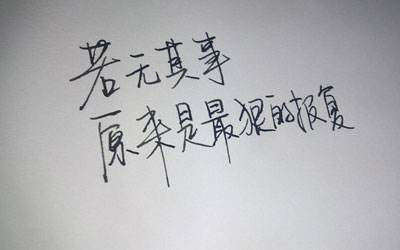 若无其事
原来是最狠的报复